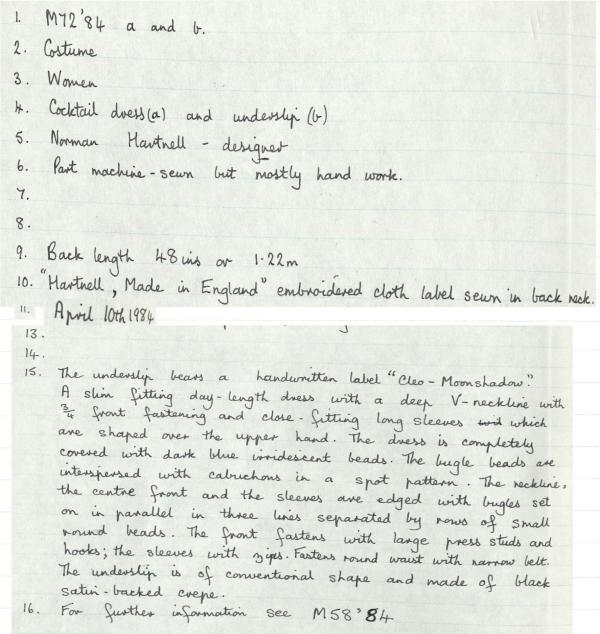 1. M72'84 a and b.
2. Costume
3. Women
4. Cocktail dress (a) and underslip (b)
5. Norman Hartnell - designer
6. Part machine-sewn but mostly hand work.
7.
8.
9. Back length 48 ins or 1·22m
10. "Hartnell, Made in England" embroidered cloth label sewn in back neck.
11. April 10th 1984
13.
14.
15. The underslip bears a handwritten label "Cleo - Moonshadow."
A slim fitting day-length dress with a deep V-neckline with
3/4 front fastening and close-fitting long sleeves which
are shaped over the upper hand. The dress is completely
covered with dark blue irridescent beads. The bugle beads are
interspersed with cabuchons in a spot pattern. The neckline,
the centre front and the sleeves are edged with bugles set
on in parallel in three lines separated by rows of small
round beads. The front fastens with large press studs and
hooks; the sleeves with zips. Fastens round waist with narrow belt.
The underslip is of conventional shape and made of black
satin-backed crepe.
16. For further information see M58'84